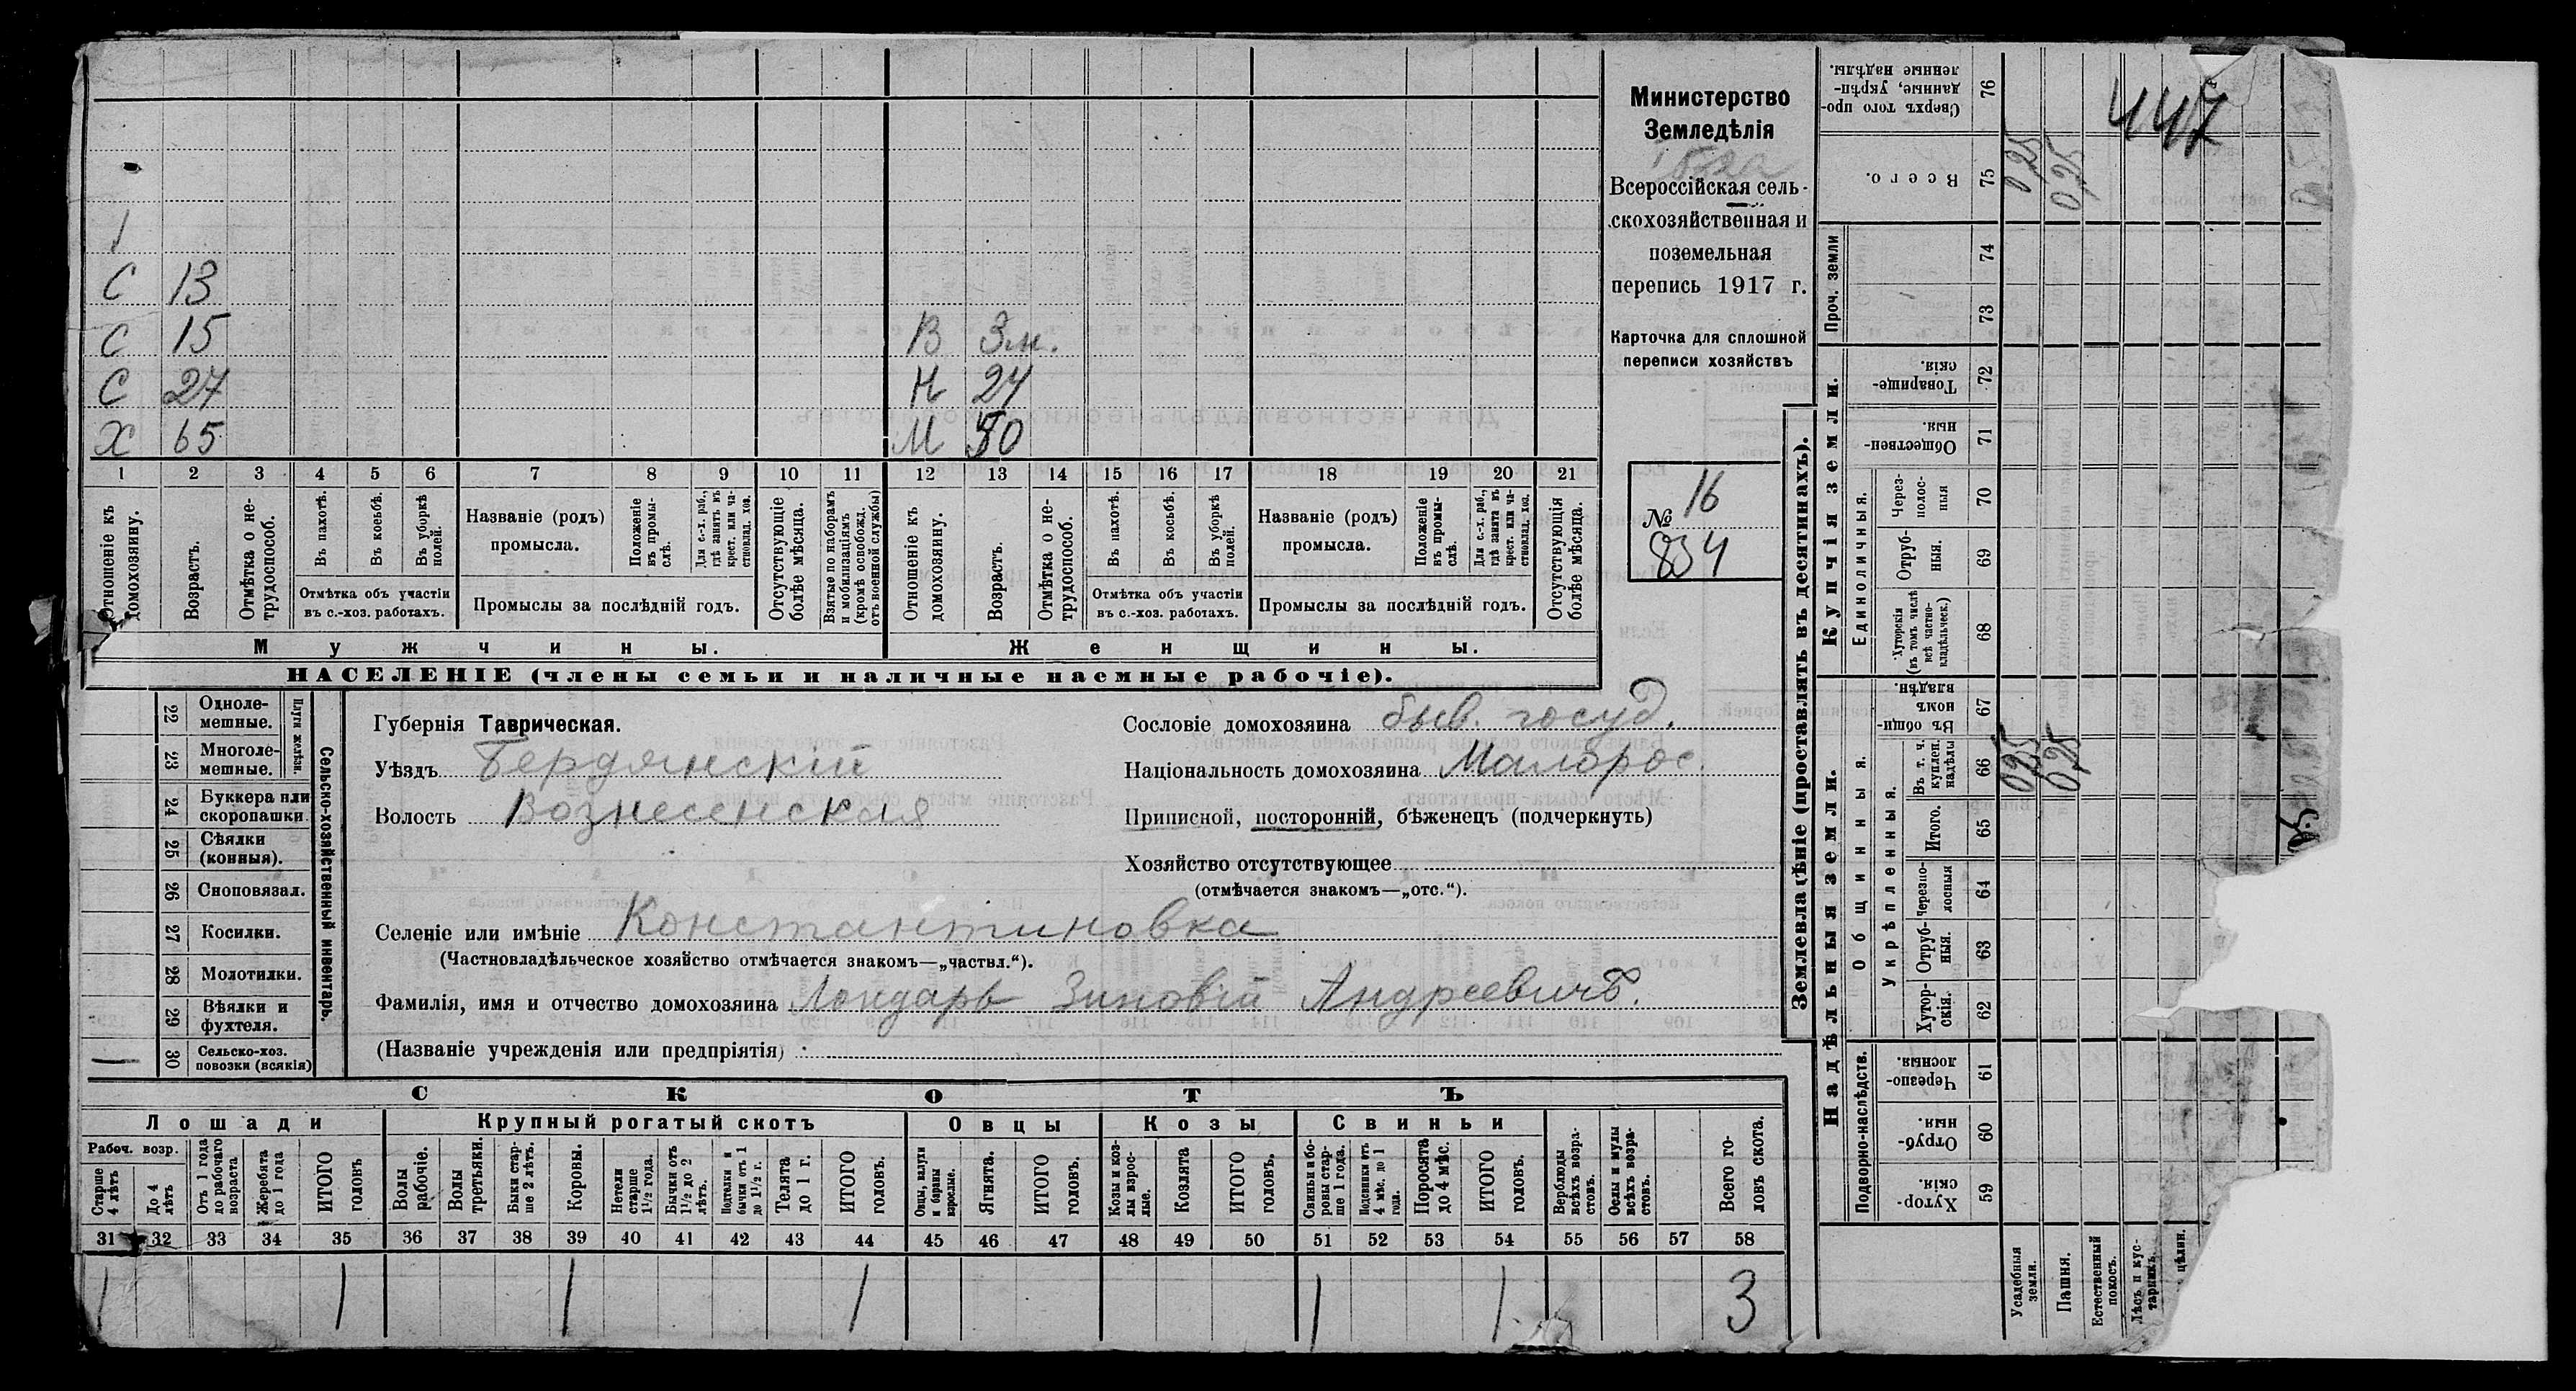 Министерство
Земледѣлія
Всероссійская сель-
скохозяйственная и
поземельная
перепись 1917 г.
Карточка для сплошной
переписи хозяйствъ
№ 16
834
447
1
С 13
С 15
В 3 м.
С 27
Н 24
Х 65
М 50
1 2 3 4 5 6 7 8 9 10 11 12 13 14 15 16 17 18 19 20 21
Отношеніе къ домохозяину.
Возрастъ.
Отмѣтка о не-трудоспособ.
Въ пахотѣ.
Въ косьбѣ.
Въ уборкѣ полей.
Отмѣтка объ участіи
въ с.-хоз. работахъ.
Названіе (родъ)
промысла.
Положеніе въ промы-слѣ.
Для с.-х. раб., гдѣ занятъ въ крест. или ча-стновлад. хоз.
Промыслы за послѣдній годъ.
Отсутствующіе болѣе мѣсяца.
Взятые по наборамъ и мобилизаціямъ (кромѣ освобожд. отъ военной службы)
Отношеніе къ домохозяину.
Возрастъ.
Отмѣтка о не-трудоспособ.
Въ пахотѣ.
Въ косьбѣ.
Въ уборкѣ полей.
Отмѣтка объ участіи
въ с.-хоз. работахъ.
Названіе (родъ)
промысла.
Положеніе въ промы-слѣ.
Для с.-х. раб., гдѣ занята въ крест. или ча-стновлад. хоз.
Промыслы за послѣдній годъ.
Отсутствующія болѣе мѣсяца.
Мужчины.
Женщины.
НАСЕЛЕНІЕ (члены семьи и наличные наемные рабочіе).
Сельско-хозяйственный инвентарь.
Плуги желѣзн.
22 Одноле-мешные.
23 Многоле-мешные.
24 Буккера или скоропашки
25 Сѣялки (конныя).
26 Сноповязал.
27 Косилки.
28 Молотилки.
29 Вѣялки и фухтеля.
30 Сельско-хоз. повозки (всякія) —
Губернія Таврическая.
Уѣздъ Бердянскій
Волость Вознесенская
Сословіе домохозяина быв. госуд.
Національность домохозяина Малорос.
Приписной, посторонній, бѣженецъ (подчеркнуть)
Хозяйство отсутствующее
(отмѣчается знакомъ—„отс.“).
Селеніе или имѣніе Константиновка
(Частновладѣльческое хозяйство отмѣчается знакомъ—„частвл.“).
Фамилія, имя и отчество домохозяина Лондарь Зиновій Андреевичъ.
(Названіе учрежденія или предпріятія)
СКОТЪ
Лошади
Крупный рогатый скотъ
Овцы
Козы
Свиньи
Рабоч. возр.
Старше 4 лѣтъ
До 4 лѣтъ
Отъ 1 года до рабочаго возраста
Жеребята до 1 года
ИТОГО головъ
Волы рабочіе.
Волы третьяки.
Быки стар-ше 2 лѣтъ.
Коровы.
Нетели старше 1½ года.
Бычки отъ 1½ до 2 лѣтъ.
Подтелки и бычки отъ 1 до 1½ г.
Телята до 1 г.
ИТОГО головъ.
Овцы, валухи и бараны взрослые.
Ягнята.
ИТОГО головъ.
Козы и коз-лы взрос-лые.
Козлята
ИТОГО головъ.
Свиньи и бо-ровы стар-ше 1 года.
Подсвинки отъ 4 мѣс. до 1 года.
Поросята до 4 мѣс.
ИТОГО головъ.
Верблюды всѣхъ возра-стовъ.
Ослы и мулы всѣхъ возра-стовъ.
Всего го-ловъ скота.
31 32 33 34 35 36 37 38 39 40 41 42 43 44 45 46 47 48 49 50 51 52 53 54 55 56 57 58
1 1 1 1 1 1 3
Землевладѣніе (проставлять въ десятинахъ).
Надѣльныя земли.
Купчія земли.
Проч. земли
Подворно-наслѣдств.
Общинныя.
Укрѣпленныя.
Единоличныя.
Хутор-скія. 59
Отруб-ныя. 60
Черезпо-лосныя. 61
Хутор-скія. 62
Отруб-ныя. 63
Черезпо-лосныя 64
Итого. 65
Въ т. ч. куплен. надѣлы 66
Въ общи-номъ владѣн. 67
Хуторскія (въ томъ числѣ всѣ частно-владѣльческ.) 68
Отруб-ныя. 69
Через-полос-ныя 70
Обществен-ныя. 71
Товарище-скія. 72
73
74
Всего. 75
Сверхъ того про-данные, укрѣп-ленные надѣлы. 76
Усадебныя земли.
025 025
Пашня.
025 025
Естественный покосъ.
Лѣсъ и кус-тарникъ.
цѣлин.